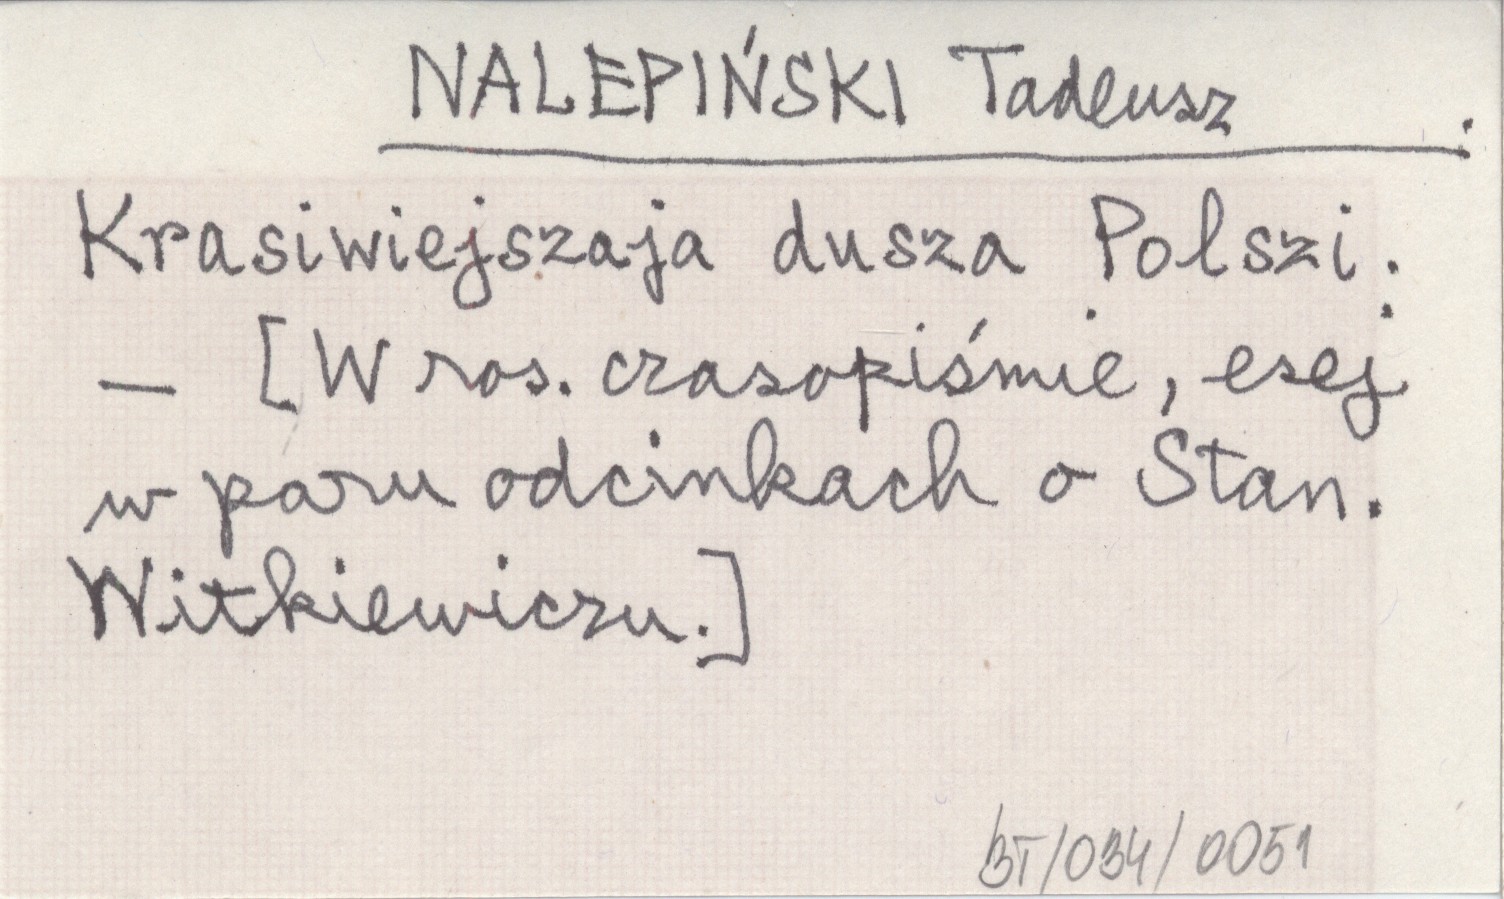 NALEPIŃSKI Tadeusz :
Krasiwiejszaja dusza Polszi.
— [W ros. czasopiśmie, esej
w paru odcinkach o Stan.
Witkiewiczu.]
BT/034/0051